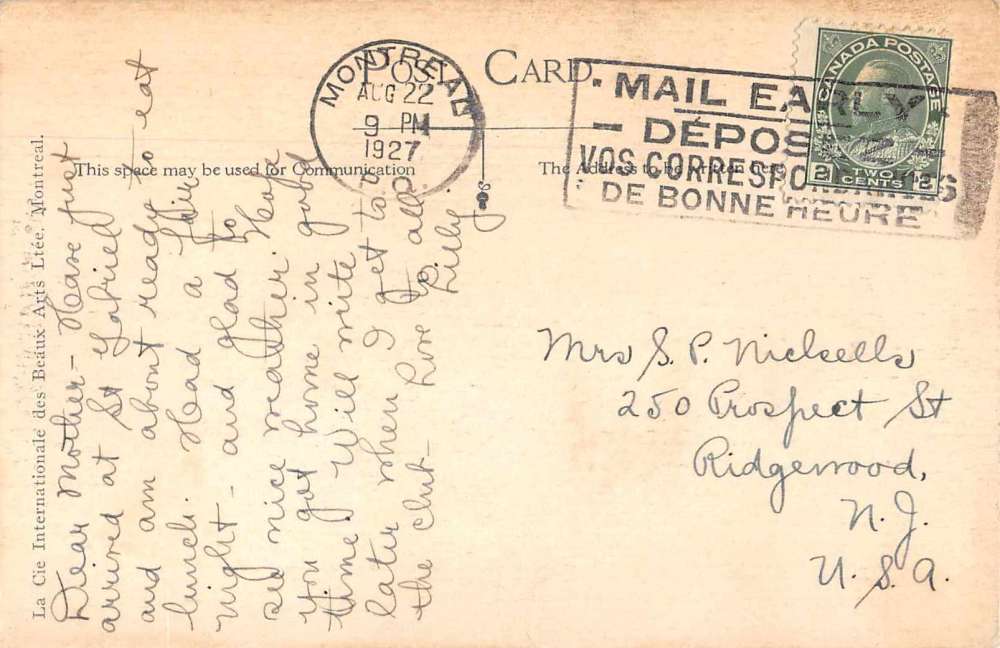 POST CARD
MONTREAL
AUG 22
9 PM
1927
MAIL EARLY
DÉPOSEZ
VOS CORRESPONDANCES
DE BONNE HEURE
CANADA POSTAGE
2 TWO CENTS 2
This space may be used for Communication
The Address to be written here
La Cie Internationale des Beaux Arts Ltée, Montreal.
Dear Mother - Have just
arrived at St Gabriel
and am about ready to eat
lunch. Had a fair
night - and glad to
see nice weather. Hope
you got home in good
time. Will write
later when I get to
the club - Love to all
Lilly
Mrs S. P. Nickells
250 Prospect St
Ridgewood,
N. J.
U. S. A.